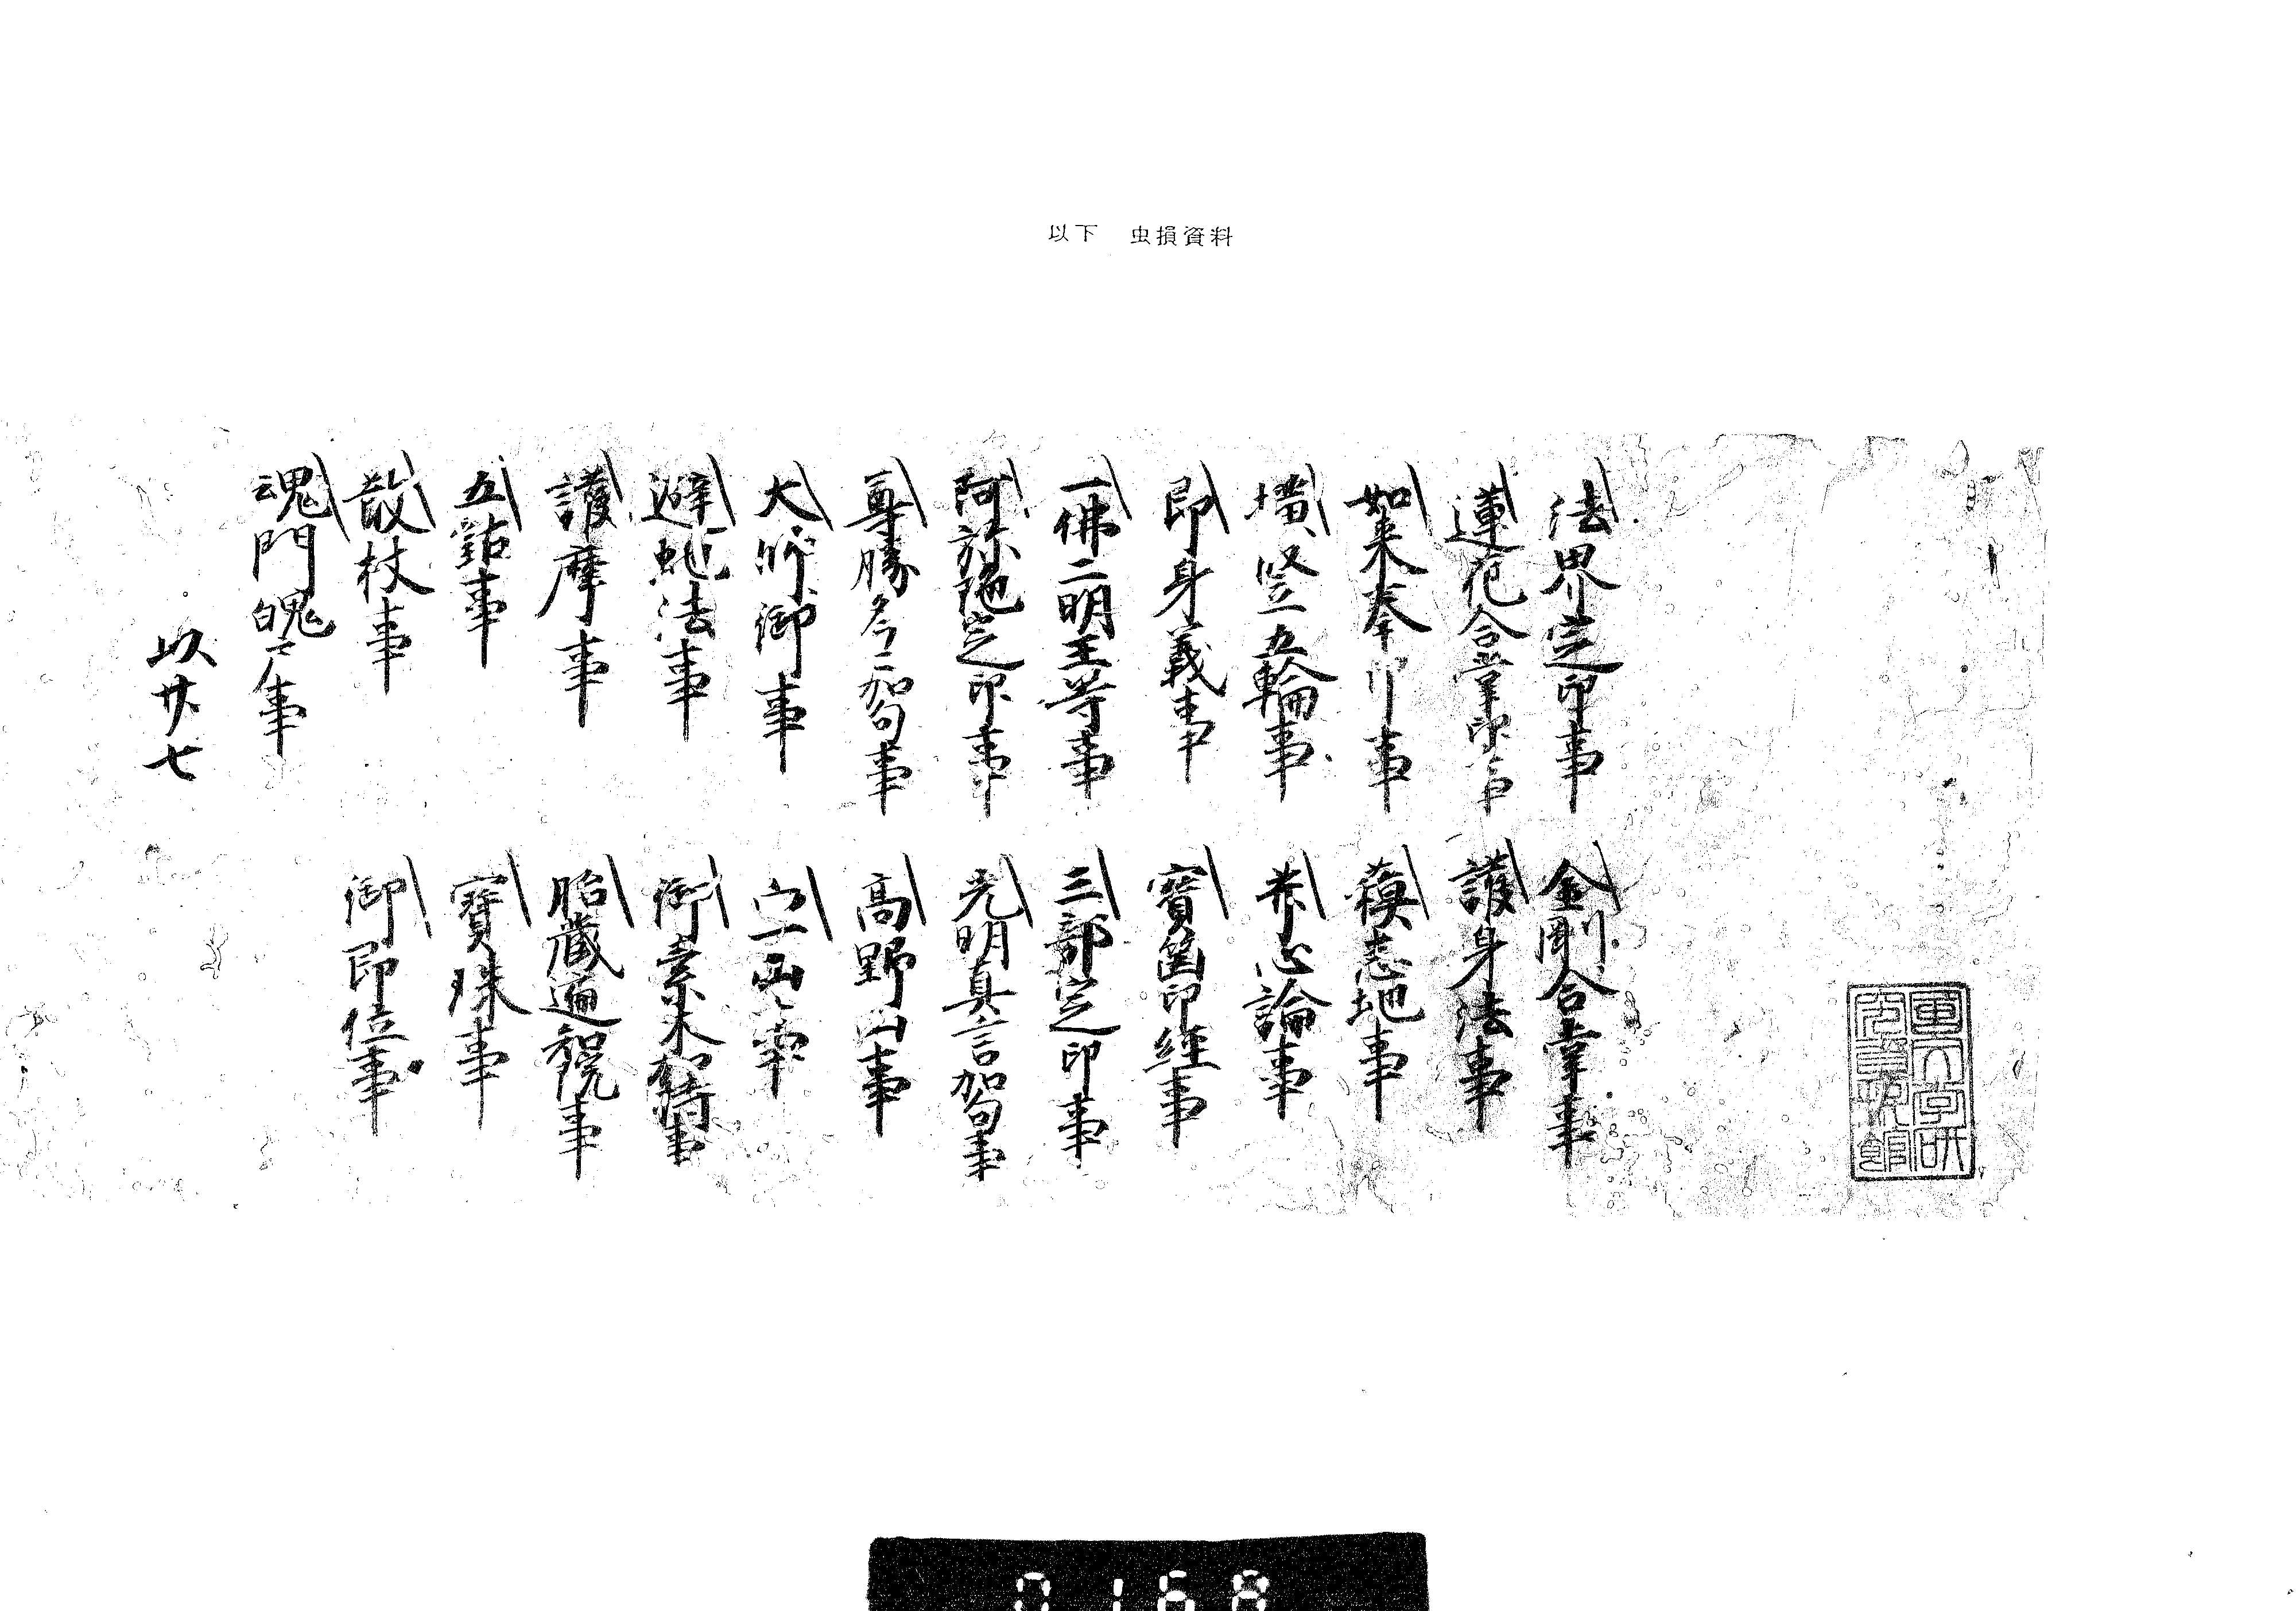 以下 虫損資料
法界定印事
金剛合掌事
蓮花合掌印言
護身法事
如来拳印事
蘓悉地事
横竪五輪事
心論事
即身義事
寶篋印経事
一佛二明王等事
三部定印事
阿弥陀定印事
光明真言加句事
尊勝タラニ加句事
高野山事
大師御事
一山事
避虵法事
御素木加持事
護摩事
胎蔵遍視事
五鈷事
寶珠事
散杖事
御即位事
魂門魄事
以廿七
0168